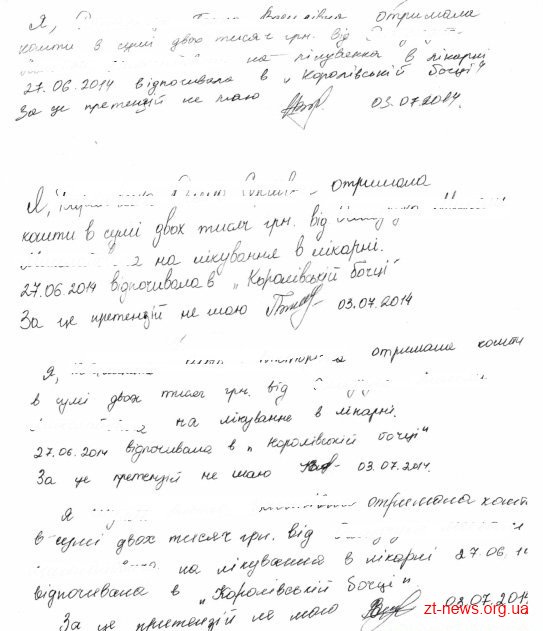 Я, отримала
кошти в сумі двох тисяч грн. від
на лікування в лікарні
27.06.2014 відпочивала в „Королівській бочці“
За це претензій не маю 03.07.2014.
Я, отримала
кошти в сумі двох тисяч грн. від
на лікування в лікарні.
27.06.2014 відпочивала в „Королівській бочці“
За це претензій не маю 03.07.2014
Я, отримала кошти
в сумі двох тисяч грн. від
на лікування в лікарні.
27.06.2014 відпочивала в „Королівській бочці“
За це претензій не маю 03.07.2014.
Я отримала кошт
в сумі двох тисяч грн. від
на лікування в лікарні 27.06.
відпочивала в „Королівській бочці“
За це претензій не маю 03.07.2014
zt-news.org.ua